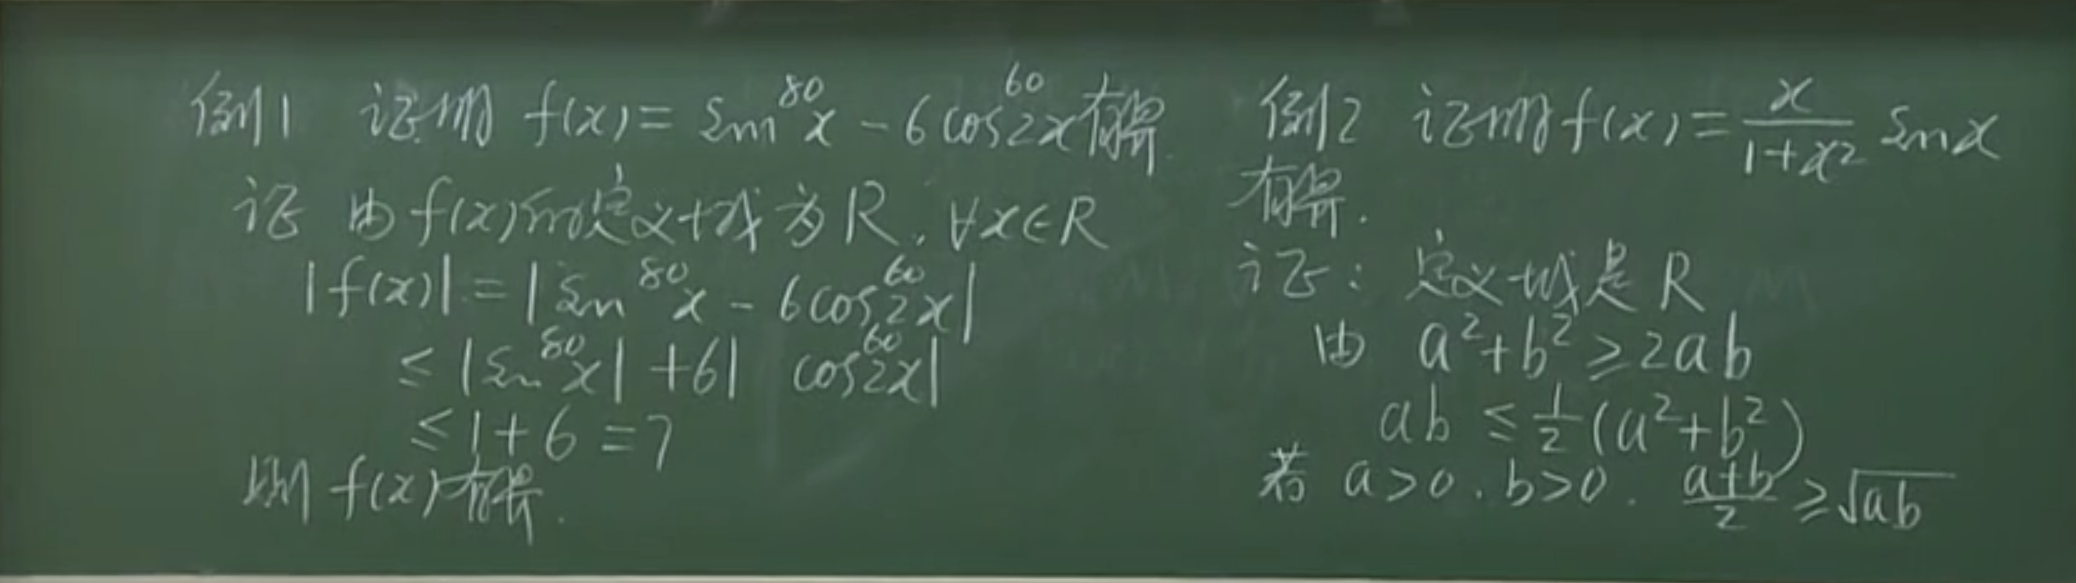 例1 证明 f(x) = sin⁸⁰x - 6cos⁶⁰2x有界.
证 由f(x)的定义域为R, ∀x∈R
|f(x)| = |sin⁸⁰x - 6cos⁶⁰2x|
≤ |sin⁸⁰x| + 6| cos⁶⁰2x|
≤ 1 + 6 = 7
则 f(x)有界.
例2 证明f(x) = x/(1+x²) sinx
有界.
证: 定义域是 R
由 a²+b² ≥ 2ab
ab ≤ 1/2(a²+b²)
若 a>0, b>0. (a+b)/2 ≥ √ab